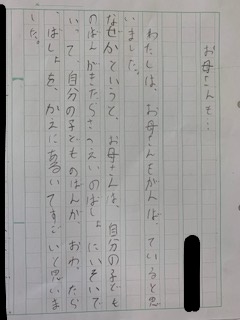 お母さんも…
わたしは、お母さんもがんばっていると思
いました。
なぜかというと、お母さんは、自分の子ども
のばんがきたらさつえいのばしょにいそいで
いって、自分の子どものばんが、おわったら
、ばしょを、かえにあるいてすごいと思いま
した。